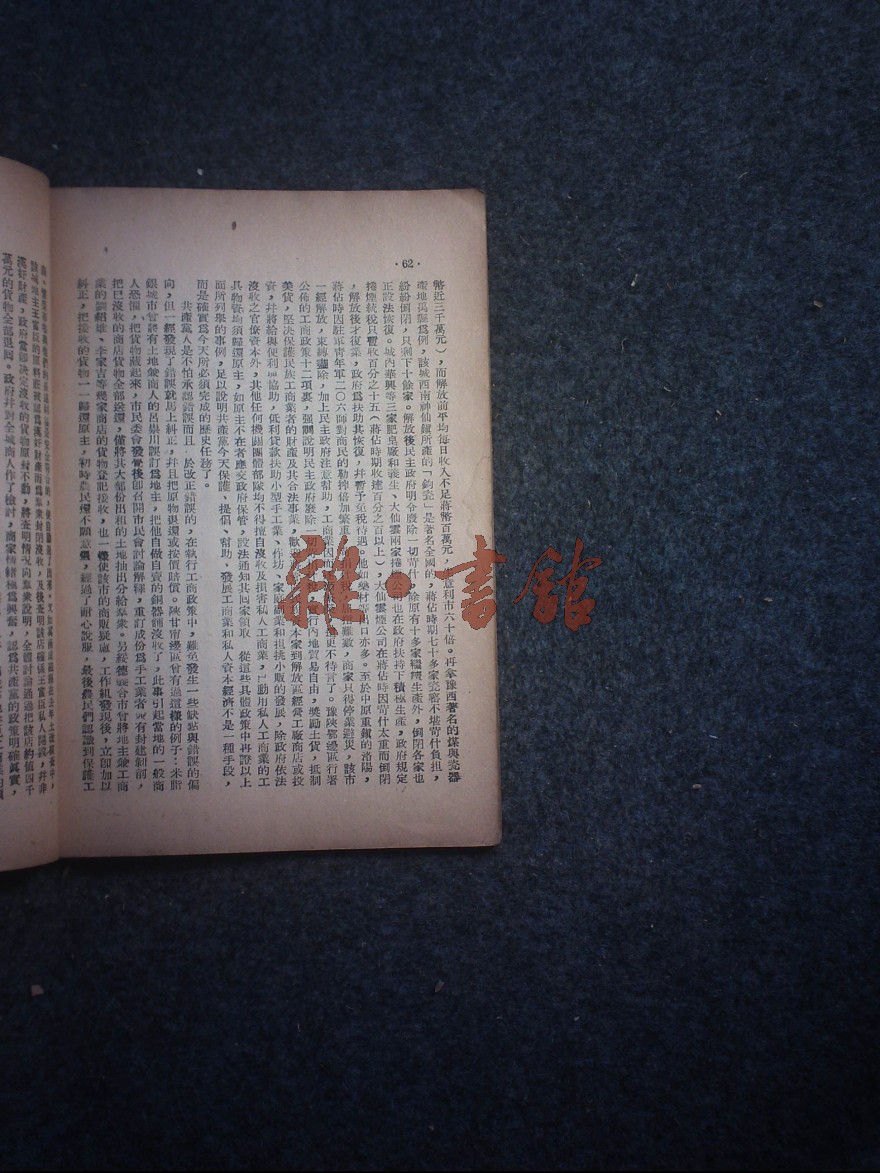 ·62·
幣近三千萬元），而解放前平均每日收入不足蔣幣百萬元，
利市六十倍。再拿豫西著名的煤與瓷器
產地禹縣爲例，該城西南神仙鎮所產的「鈞瓷」是著名全國的，蔣佔時期七十多家瓷窰不堪苛什負担，
紛紛倒閉，只剩下十餘家。解放後民主政府明令廢除一切苛什，除原有十多家繼續生產外，倒閉各家也
正設法恢復。城內華興等三家肥皂廠和義生、大仙雲兩家捲煙公司也在政府扶持下積極生產，政府規定
捲煙統稅只暫收百分之十五（蔣佔時期收達百分之百以上），大仙雲煙公司在蔣佔時因苛什太重而倒閉
，解放後才復業，政府爲扶助其恢復，幷暫予免稅待遇。
出口亦多。至於中原重鎮的洛陽，
蔣佔時因駐軍青年軍二〇六師對商民的勒搾倍加繁重，
難數，商家只得停業避災，該市
一經解放，束縛盡除，加上民主政府注意幫助，工商業因而
更不待言了。豫陝鄂邊區行署
公佈的工商政策十二項裏，强調說明民主政府廢除一切
行內地貿易自由，獎勵土貨，抵制
美貨，堅决保護民族工商業者的財產及其合法事業，歡迎
本家到解放區經營工廠商店或投
資，幷將給與便利與協助，低利貸款扶助小型手工業、作坊、家庭副業和担挑小販的發展，除政府依法
沒收之官僚資本外，其他任何機關團體部隊均不得擅自沒收及損害私人工商業，已動用私人工商業的工
具物資均須歸還原主，如原主不在者應交政府保管，設法通知其回家領取　從這些具體政策中再證以上
面所列舉的事例，足以說明共產黨今天保護、提倡、幫助、發展工商業和私人資本經濟不是一種手段，
而是確實爲今天所必須完成的歷史任務了。
共產黨人是不怕承認錯誤而且　於改正錯誤的，在執行工商政策中，雖曾發生一些缺點與錯誤的偏
向，但一經發現了錯誤就馬上糾正，幷且把原物退還或按價賠償。陝甘甯邊區曾有過這樣的例子：米脂
銀城市曾誤有土地兼商人的呂崇川誤訂爲地主，把他自做自賣的銅器舖沒收了，此事引起當地的一般商
人恐懼，把貨物藏起來，市民委會發覺後卽召開市民會討論解釋，重訂成份爲手工業者兼有封建剝削，
把已沒收的商店貨物全部送還，僅將其大部份出租的土地抽出分給羣衆。另綏德義合市曾將地主兼工商
業的劉紹雄、李家吉等幾家商店的貨物登記接收，也一樣使該市的商販疑慮，工作組發現後，立卽加以
糾正，把接收的貨物一一歸還原主，初時農民還不願意退，經過了耐心說服，最後農民們認識到保護工
諸城地主王富臣的原料莊被認爲漢奸財產而爲羣衆封閉沒收，及後查明該店確係王富臣私人經營，幷非
漢奸財產，政府當卽决定沒收的貨物原封不動，將查明情况向羣衆說明，全體討論通過把該店約值四千
萬元的貨物全部退回。政府幷對全城商人作了檢討，商家情緒極爲興奮，認爲共產黨的政策明確眞實，
雜·書館